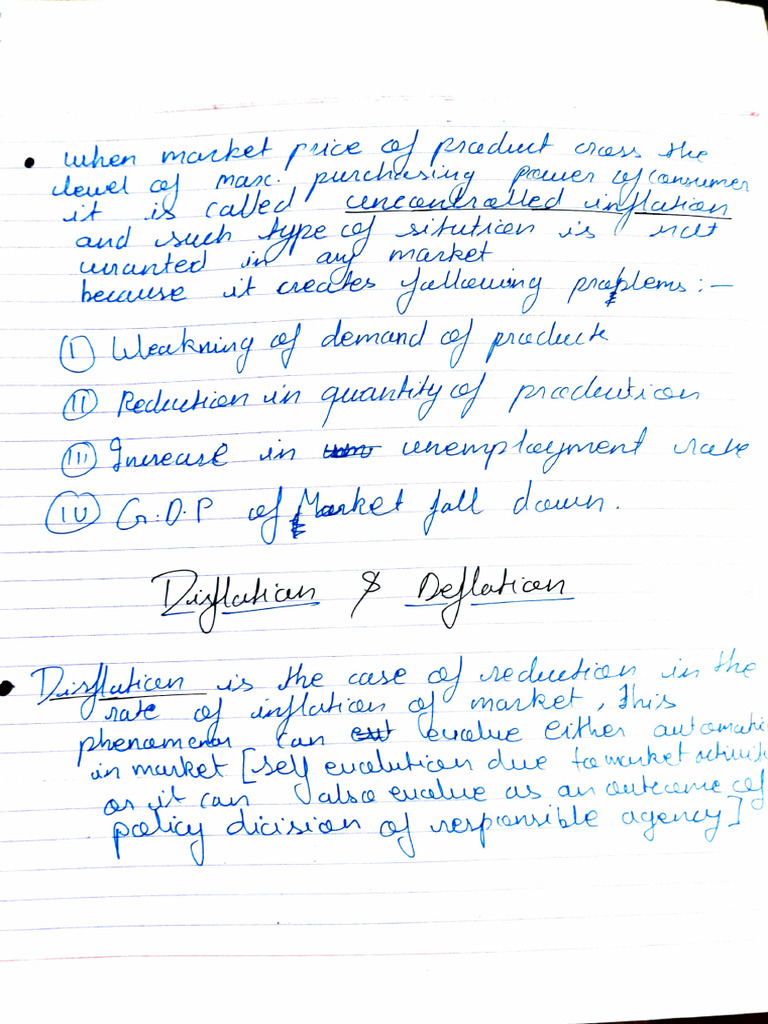 • When market price of product cross the
level of max. purchasing power of consumer
it is called uncontrolled inflation
and such type of sitution is not
wanted in any market
because it creates following problems :-
(I) Weakning of demand of products
(II) Reduction in quantity of prodution
(III) Increase in unemployment rate
(IV) G.D.P of Market fall down.
Disflation & Deflation
• Disflation is the case of reduction in the
rate of inflation of market, this
phenomena can evolve either automatic
in market [self evolution due to market activit
or it can also evolve as an outcome of
policy dicision of responsible agency]